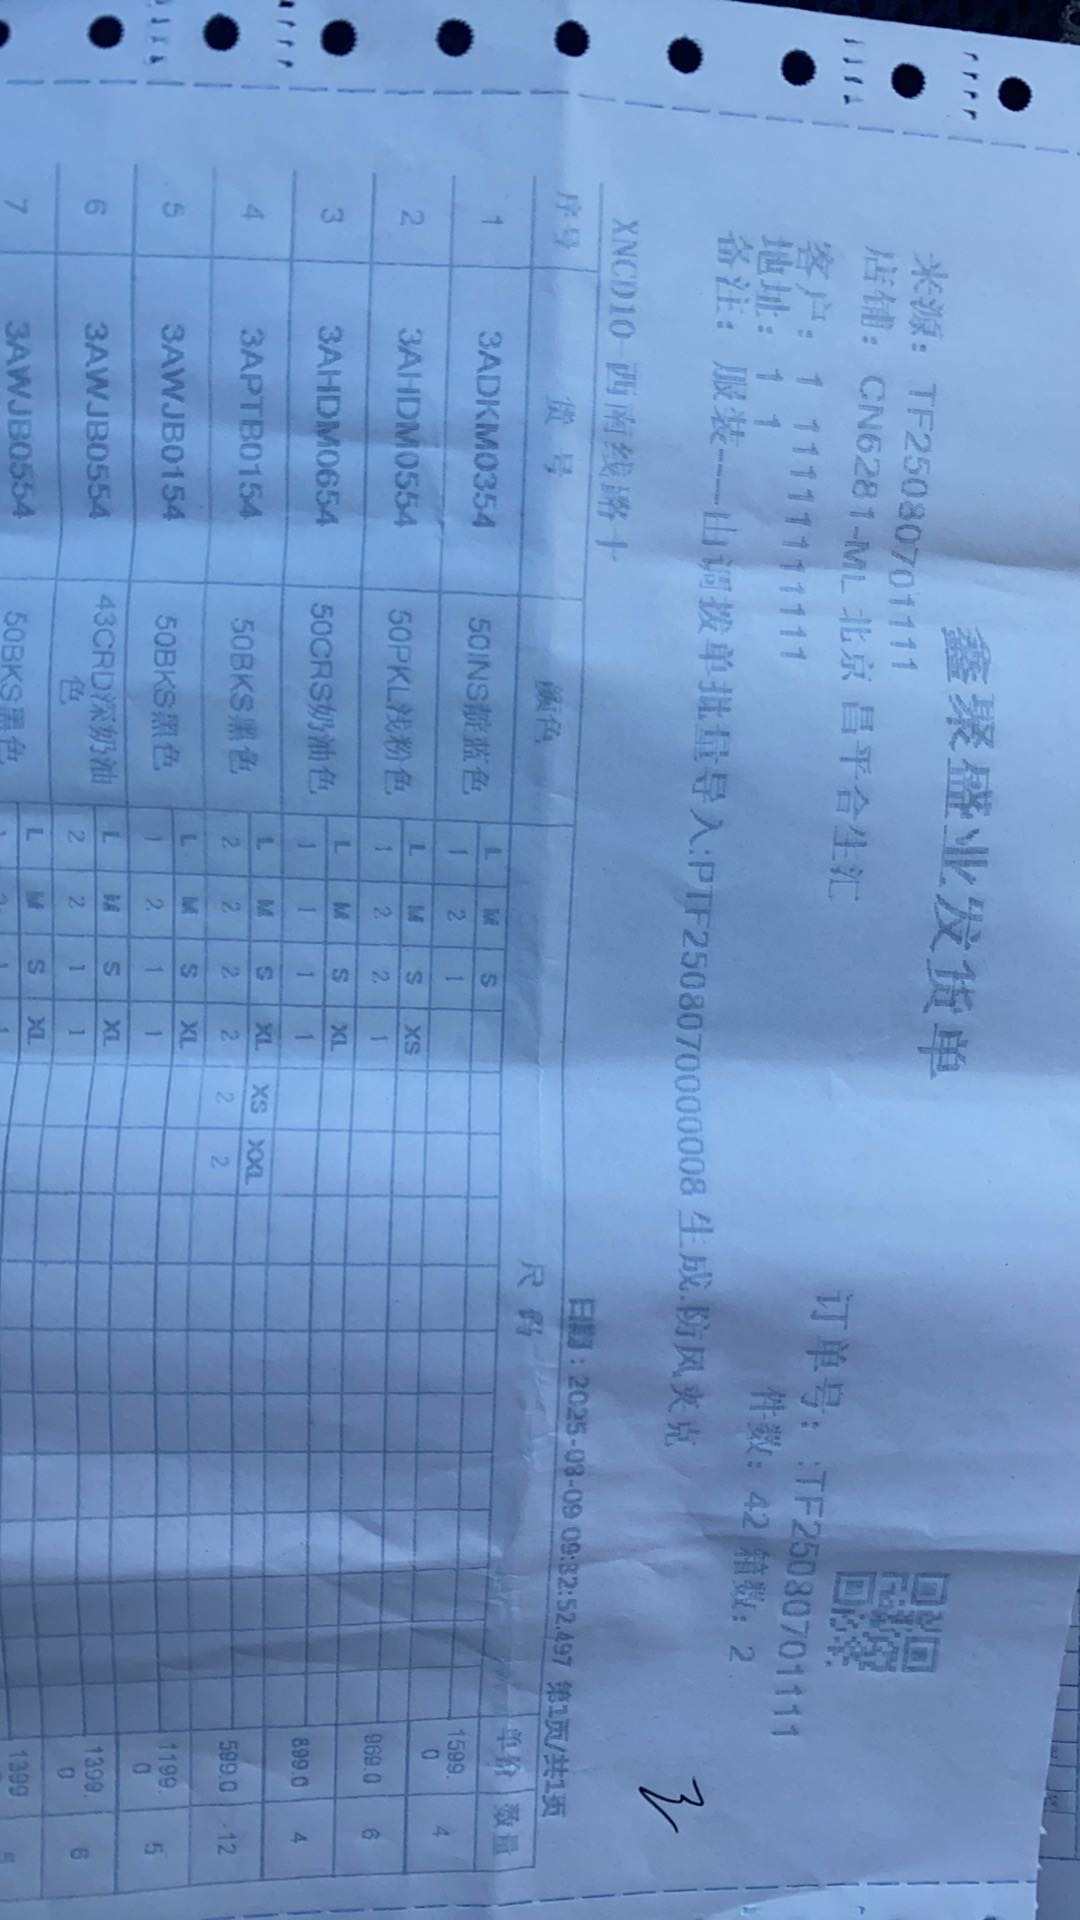 鑫聚盛业发货单
来源: TF25080701111
店铺: CN6281-ML北京昌平合生汇
订单号: :TF25080701111
客户: 1 11111111111
件数: 42 箱数: 2
地址: 1 1
备注: 服装----由调拨单批量导入:PTF25080700000008生成.防风夹克
XNCD10-西南线路十
日期: 2025-08-09 09:32:52.497 第1页/共1页
序号 货号 颜色 尺码 单价 数量
L M S
1 3ADKM0354 50INS靛蓝色 1 2 1 1599.0 4
L M S XS
2 3AHDM0554 50PKL浅粉色 1 2 2 1 969.0 6
L M S XL
3 3AHDM0654 50CRS奶油色 1 1 1 1 899.0 4
L M S XL XS XXL
4 3APTB0154 50BKS黑色 2 2 2 2 2 2 599.0 12
L M S XL
5 3AWJB0154 50BKS黑色 1 2 1 1 1199.0 5
L M S XL
6 3AWJB0554 43CRD深奶油色 2 2 1 1 1399.0 6
L M S XL
7 3AWJB0554 50BKS黑色 1 2 1 1 1399